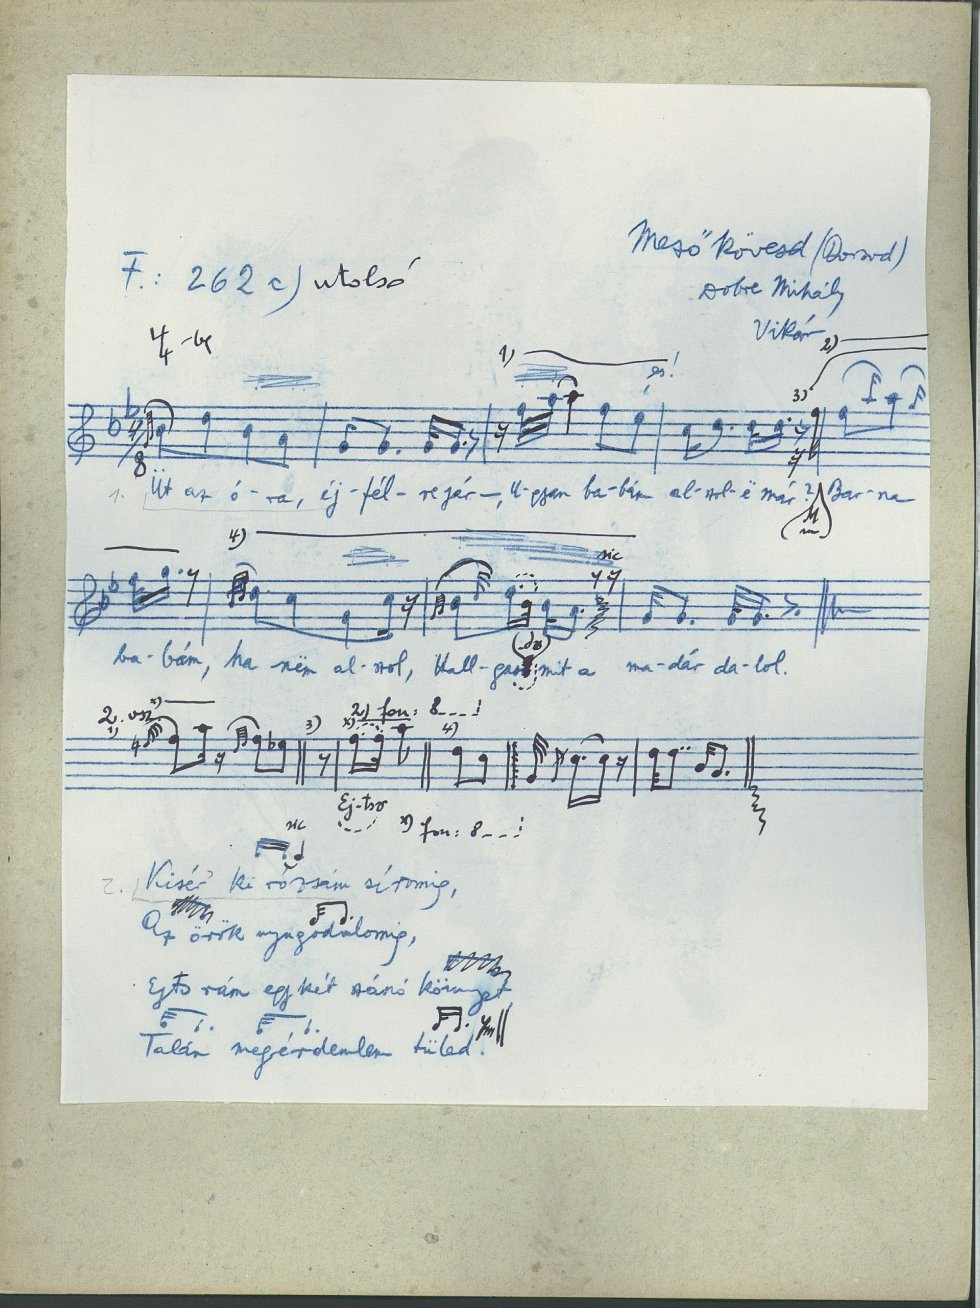 Mező kövesd (Borsod)
F.: 262 c) utolsó
Dobre Mihály
Vikár
4/4 -be
1)
2)
és!
3)
4/8
1. Üt az ó-ra, éj-fél-re jár-, U-gyan ba-bám al-szol-ë már? Bar-na
4)
sic
ba-bám, ha nëm al-szol, Hall-gasd mit a ma-dár da-lol.
2. vsz. x)
2) fon: 8
1) 3) x) 4)
Ej-tso
x) fon: 8
sic
2. Kisér ki rózsám síromig,
Az örök nyugodalomig,
Ejts rám egy két szánó könnyet
Talán megérdemlem tüled.